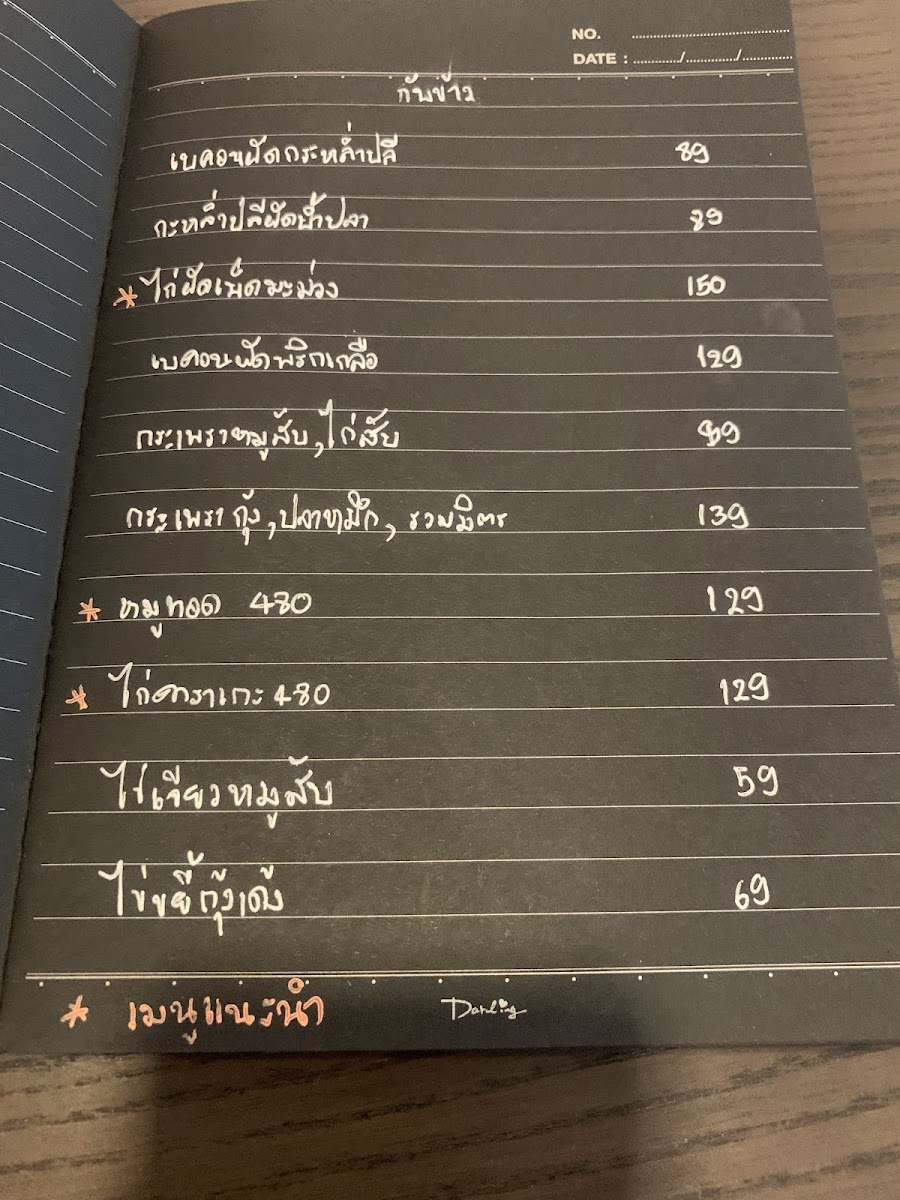 NO. ........................
DATE : ........../........../..........
กับข้าว
เบคอนผัดกระหล่ำปลี 89
กะหล่ำปลีผัดน้ำปลา 89
* ไก่ผัดเม็ดมะม่วง 150
เบคอนผัดพริกเกลือ 129
กระเพราหมูสับ,ไก่สับ 89
กระเพรา กุ้ง,ปลาหมึก, รวมมิตร 139
* หมูทอด 480 129
* ไก่คาราเกะ 480 129
ไข่เจียวหมูสับ 59
ไข่ขยี้กุ้งเด้ง 69
* เมนูแนะนำ
Darling